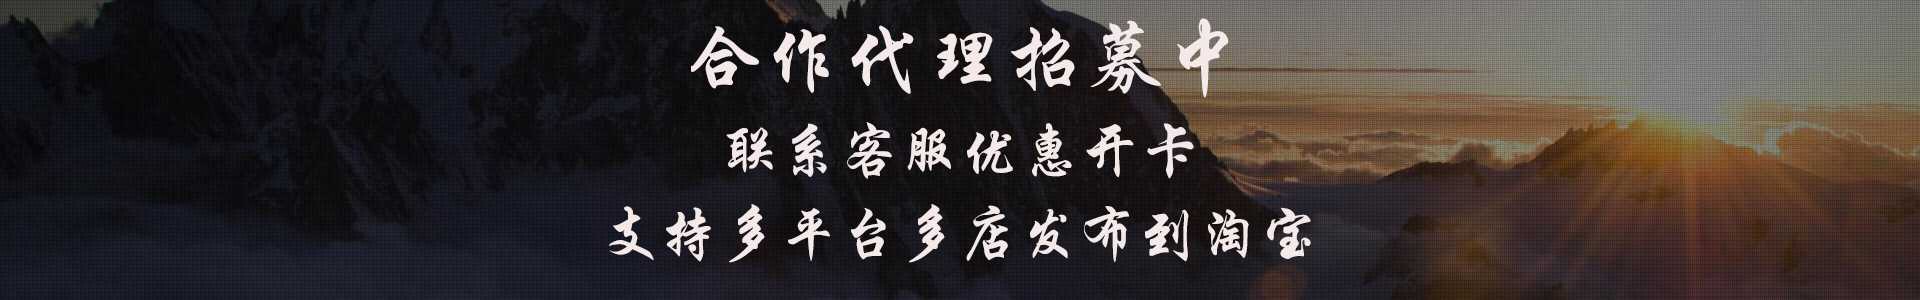 合作代理招募中
联系客服优惠开卡
支持多平台多店发布到淘宝